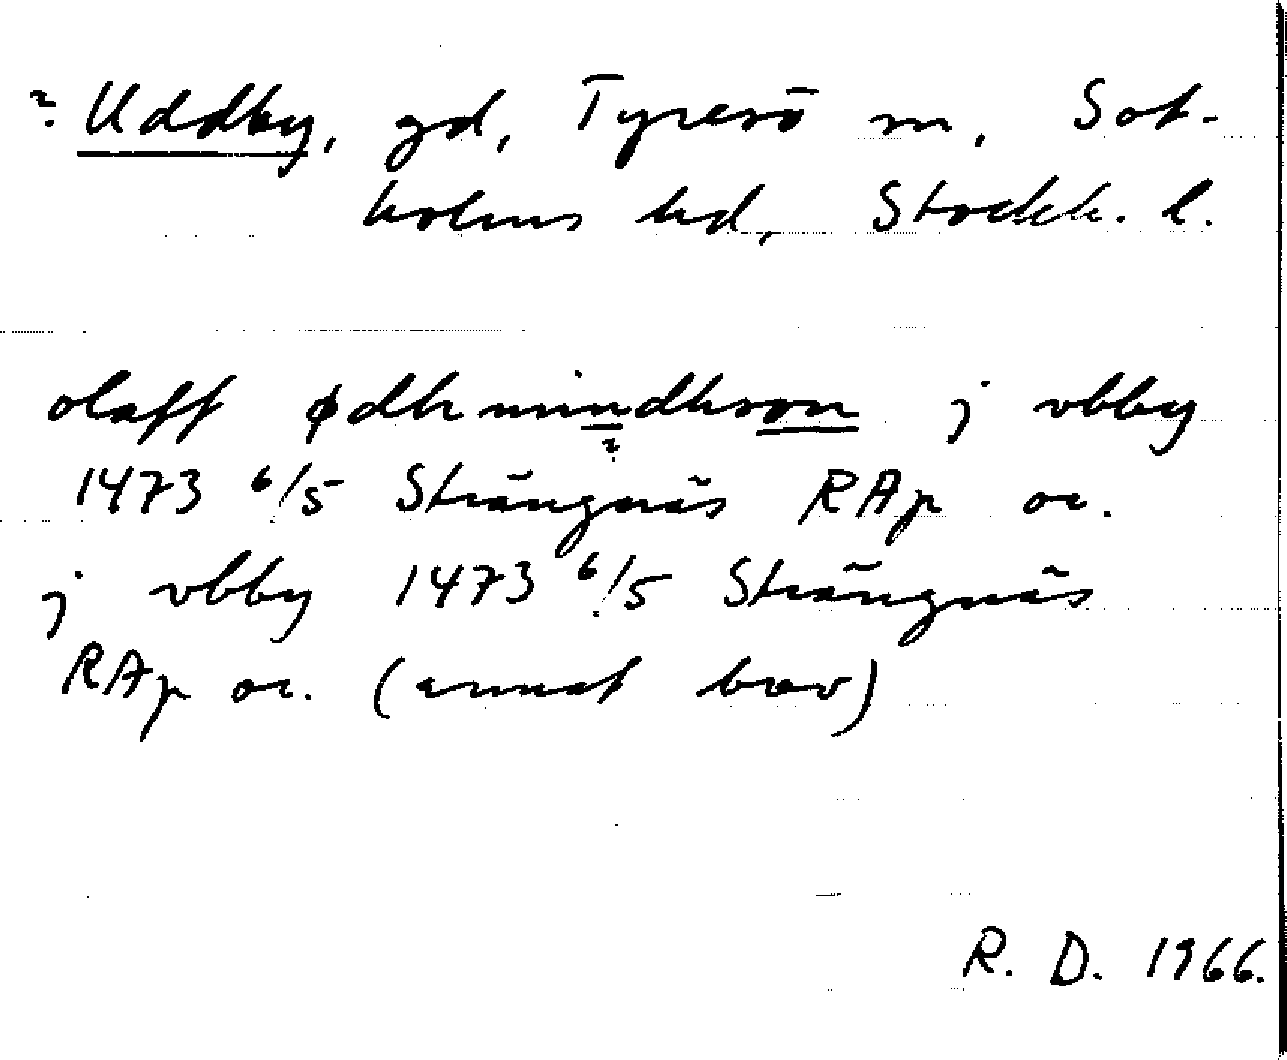 ? Uddby, gd, Tyresö sn, Sot-
holms hd, Stockh. l.
olaff ødhmindhson j vbby
?
1473 6/5 Strängnäs RAp or.
j vbby 1473 6/5 Strängnäs
RAp or. (annat brev)
R. D. 1966.